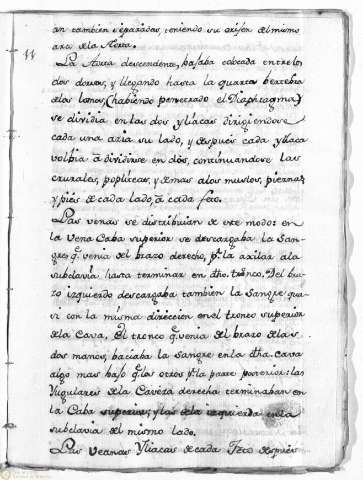 an tambien separadas, teniendo su orisen del mismo
arco de la Aorta.
11
La Aorta descendente, bajaba colocada entre los
dos dorsos, y llegando hasta la quarta bertebra
de los lomos, (habiendo penetrado el Diaphragma)
se dividia en las dos yliacas dirigiendose
cada una azia su lado, y despues cada yliaca
volbia á dividirse en dos, continuandose las
crurales, popliteas, y demas alos muslos, piernas
y pies de cada lado, á cada feto.
Las venas se distribuian de este modo: en
la Vena Caba superior se descargaba la San-
gre q.e venia del brazo derecho, p.r la axilar ala
subclavia hasta terminar en dho. tronco. Del bra-
zo izquierdo descargaba tambien la sangre qua-
si con la misma direccion en el tronco superior
de la Cava. El tronco q.e venia del brazo de las
dos manos, baciaba la sangre en la dha. cava
algo mas bajo q.e los otros p.r la parte posterior: las
Yugulares de la Caveza derecha terminaban en
la Caba superior; y las de la izquierda en la
subclavia del mismo lado.
Las venas Yliacas de cada Feto despues